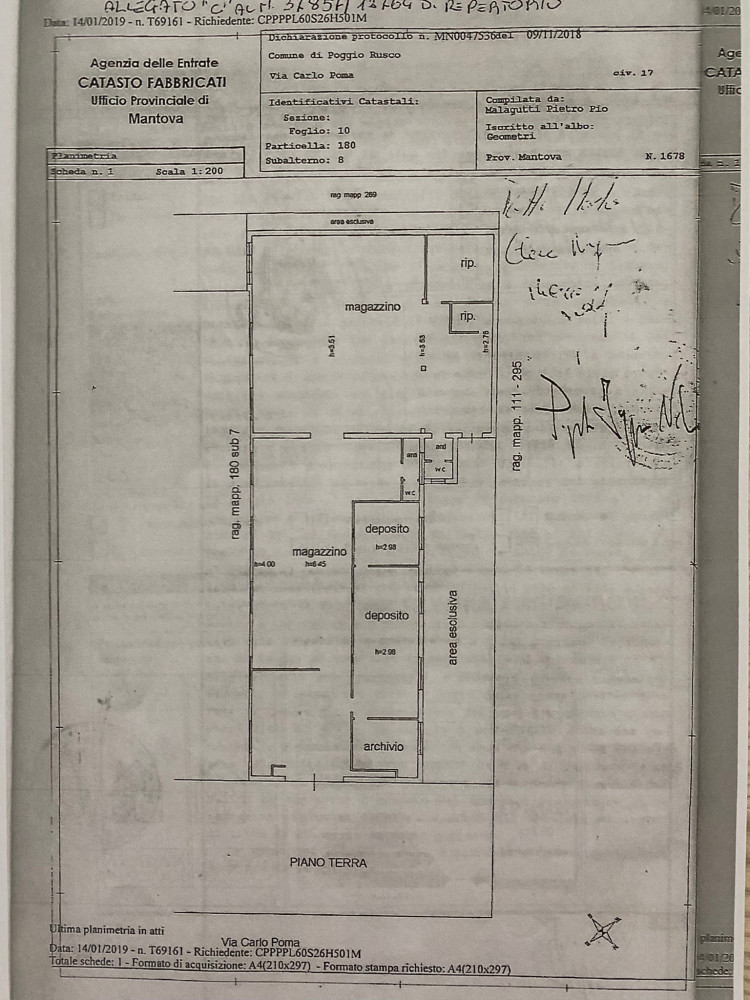 ALLEGATO "C" AL N.
DI REPERTORIO
Data: 14/01/2019 - n. T69161 - Richiedente: CPPPPL60S26H501M
Agenzia delle Entrate
CATASTO FABBRICATI
Ufficio Provinciale di
Mantova
Dichiarazione protocollo n. MN0047536del 09/11/2018
Comune di Poggio Rusco
Via Carlo Poma civ. 17
Identificativi Catastali:
Sezione:
Foglio: 10
Particella: 180
Subalterno: 8
Compilata da:
Malagutti Pietro Pio
Iscritto all'albo:
Geometri
Prov. Mantova N. 1678
Planimetria
Scheda n. 1 Scala 1:200
rag mapp 269
area esclusiva
rip.
magazzino
rip.
h=3.51
h=3.53
h=2.76
rag. mapp. 111 - 295
rag. mapp. 180 sub 7
ant
w.c.
ant
w.c.
deposito
h=2.98
magazzino
h=4.00
h=6.45
deposito
h=2.98
area esclusiva
archivio
PIANO TERRA
Ultima planimetria in atti
Via Carlo Poma
Data: 14/01/2019 - n. T69161 - Richiedente: CPPPPL60S26H501M
Totale schede: 1 - Formato di acquisizione: A4(210x297) - Formato stampa richiesto: A4(210x297)